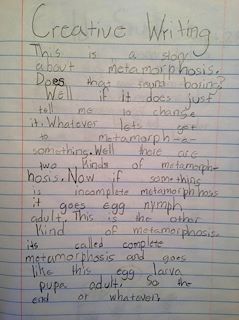 Creative Writing
This is a story
about metamorphosis.
Does that sound boring?
Well if it does just
tell me to change
it. Whatever lets get
to metamorph-a-
something. Well there are
two kinds of metamorph-
hosis. Now if something
is incomplete metamorphhosis
it goes egg nymph
adult. This is the other
kind of metamorphosis
its called complete
metamorphosis and goes
like this egg larva
pupa adult. So the
end or whatever.